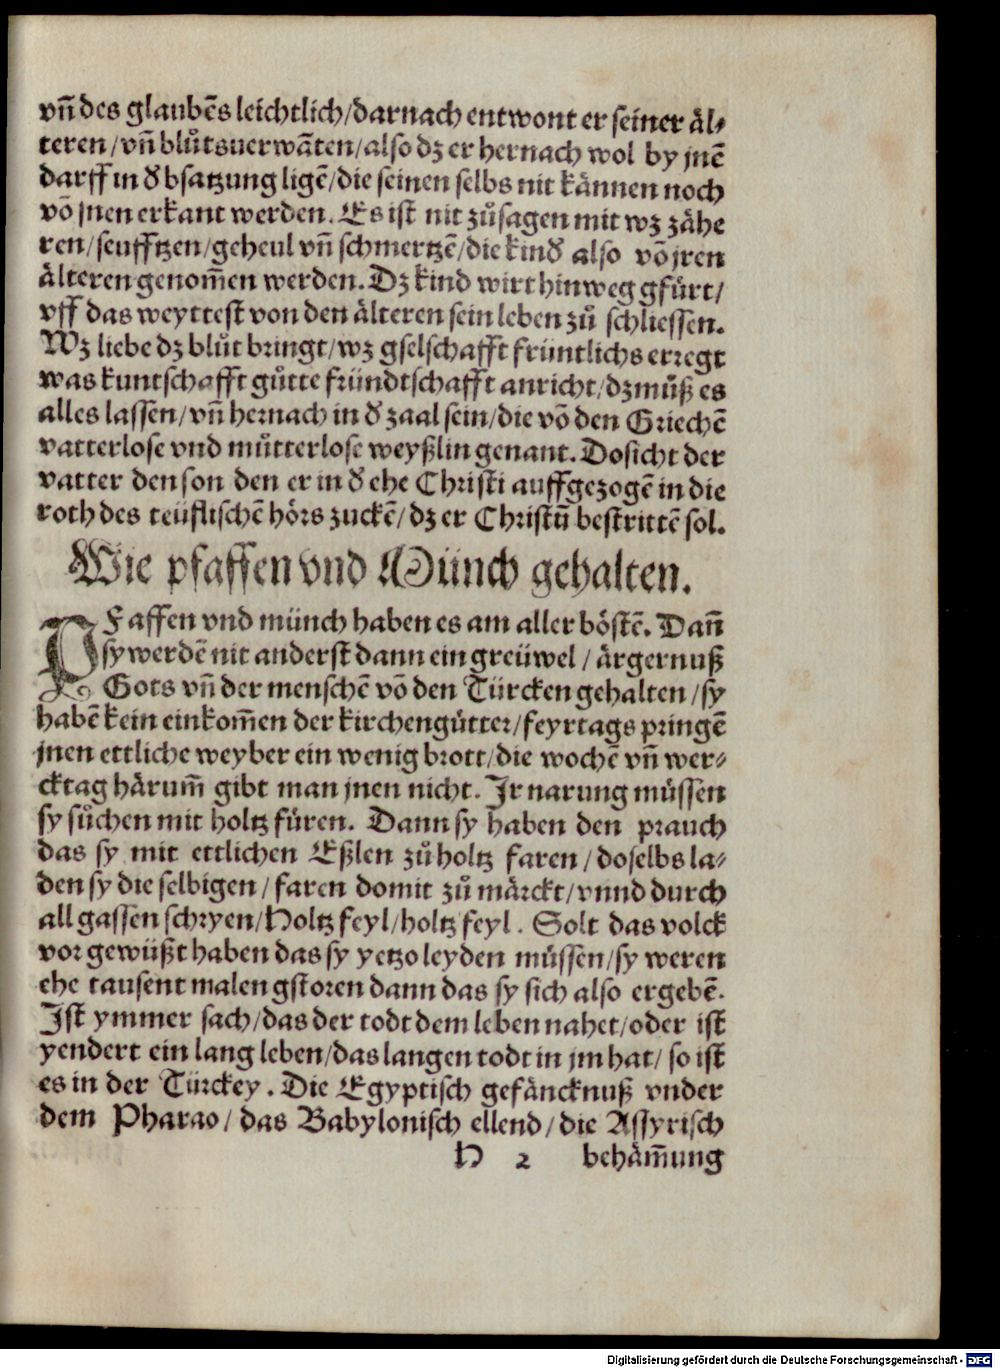 vñ des glaubẽs leichtlich/darnach entwont er seiner äl⸗
teren/vñ blůtsuerwãten/also dz er hernach wol by jnẽ
darff in ď bsatzung ligẽ/die seinen selbs nit kännen noch
võ jnen erkant werden. Es ist nit zůsagen mit wz zähe
ren/seufftzen/geheul vñ schmertzẽ/die kinď also võ jren
älteren genom̃en werden. Dz kind wirt hinweg gfürt/
vff das weyttest von den älteren sein leben zů schliessen.
Wz liebe dz blůt bringt/wz gselschafft früntlichs erregt
was kuntschafft gůtte fründtschafft anricht/dz můß es
alles lassen/vñ hernach in ď zaal sein/die võ den Griechẽ
vatterlose vnd můtterlose weyßlin genant. Do sicht der
vatter den son den er in ď ehe Christi auffgezogẽ in die
roth des teüflischẽ hörs zuckẽ/dz er Christũ bestrittẽ sol.
Wie pfaffen vnd Münch gehalten.
PFaffen vnd münch haben es am aller böstẽ. Dañ
sy werdẽ nit anderst dann ein greüwel/ärgernuß
Gots vñ der menschẽ võ den Türcken gehalten/sy
habẽ kein einkom̃en der kirchengůtter/feyrtags pringẽ
jnen ettliche weyber ein wenig brott/die wochẽ vñ wer⸗
cktag härum̃ gibt man jnen nicht. Ir narung müssen
sy sůchen mit holtz füren. Dann sy haben den prauch
das sy mit ettlichen Eßlen zů holtz faren/doselbs la⸗
den sy die selbigen/faren domit zů märckt/vnnd durch
all gassen schryen/Holtz feyl/holtz feyl. Solt das volck
vor gewüßt haben das sy yetzo leyden müssen/sy weren
ehe tausent malen gstoren dann das sy sich also ergebẽ.
Ist ymmer sach/das der todt dem leben nahet/oder ist
yendert ein lang leben/das langen todt in jm hat/so ist
es in der Türckey. Die Egyptisch gefäncknuß vnder
dem Pharao/das Babylonisch ellend/die Assyrisch
H 2 behäm̃ung
Digitalisierung gefördert durch die Deutsche Forschungsgemeinschaft - DFG